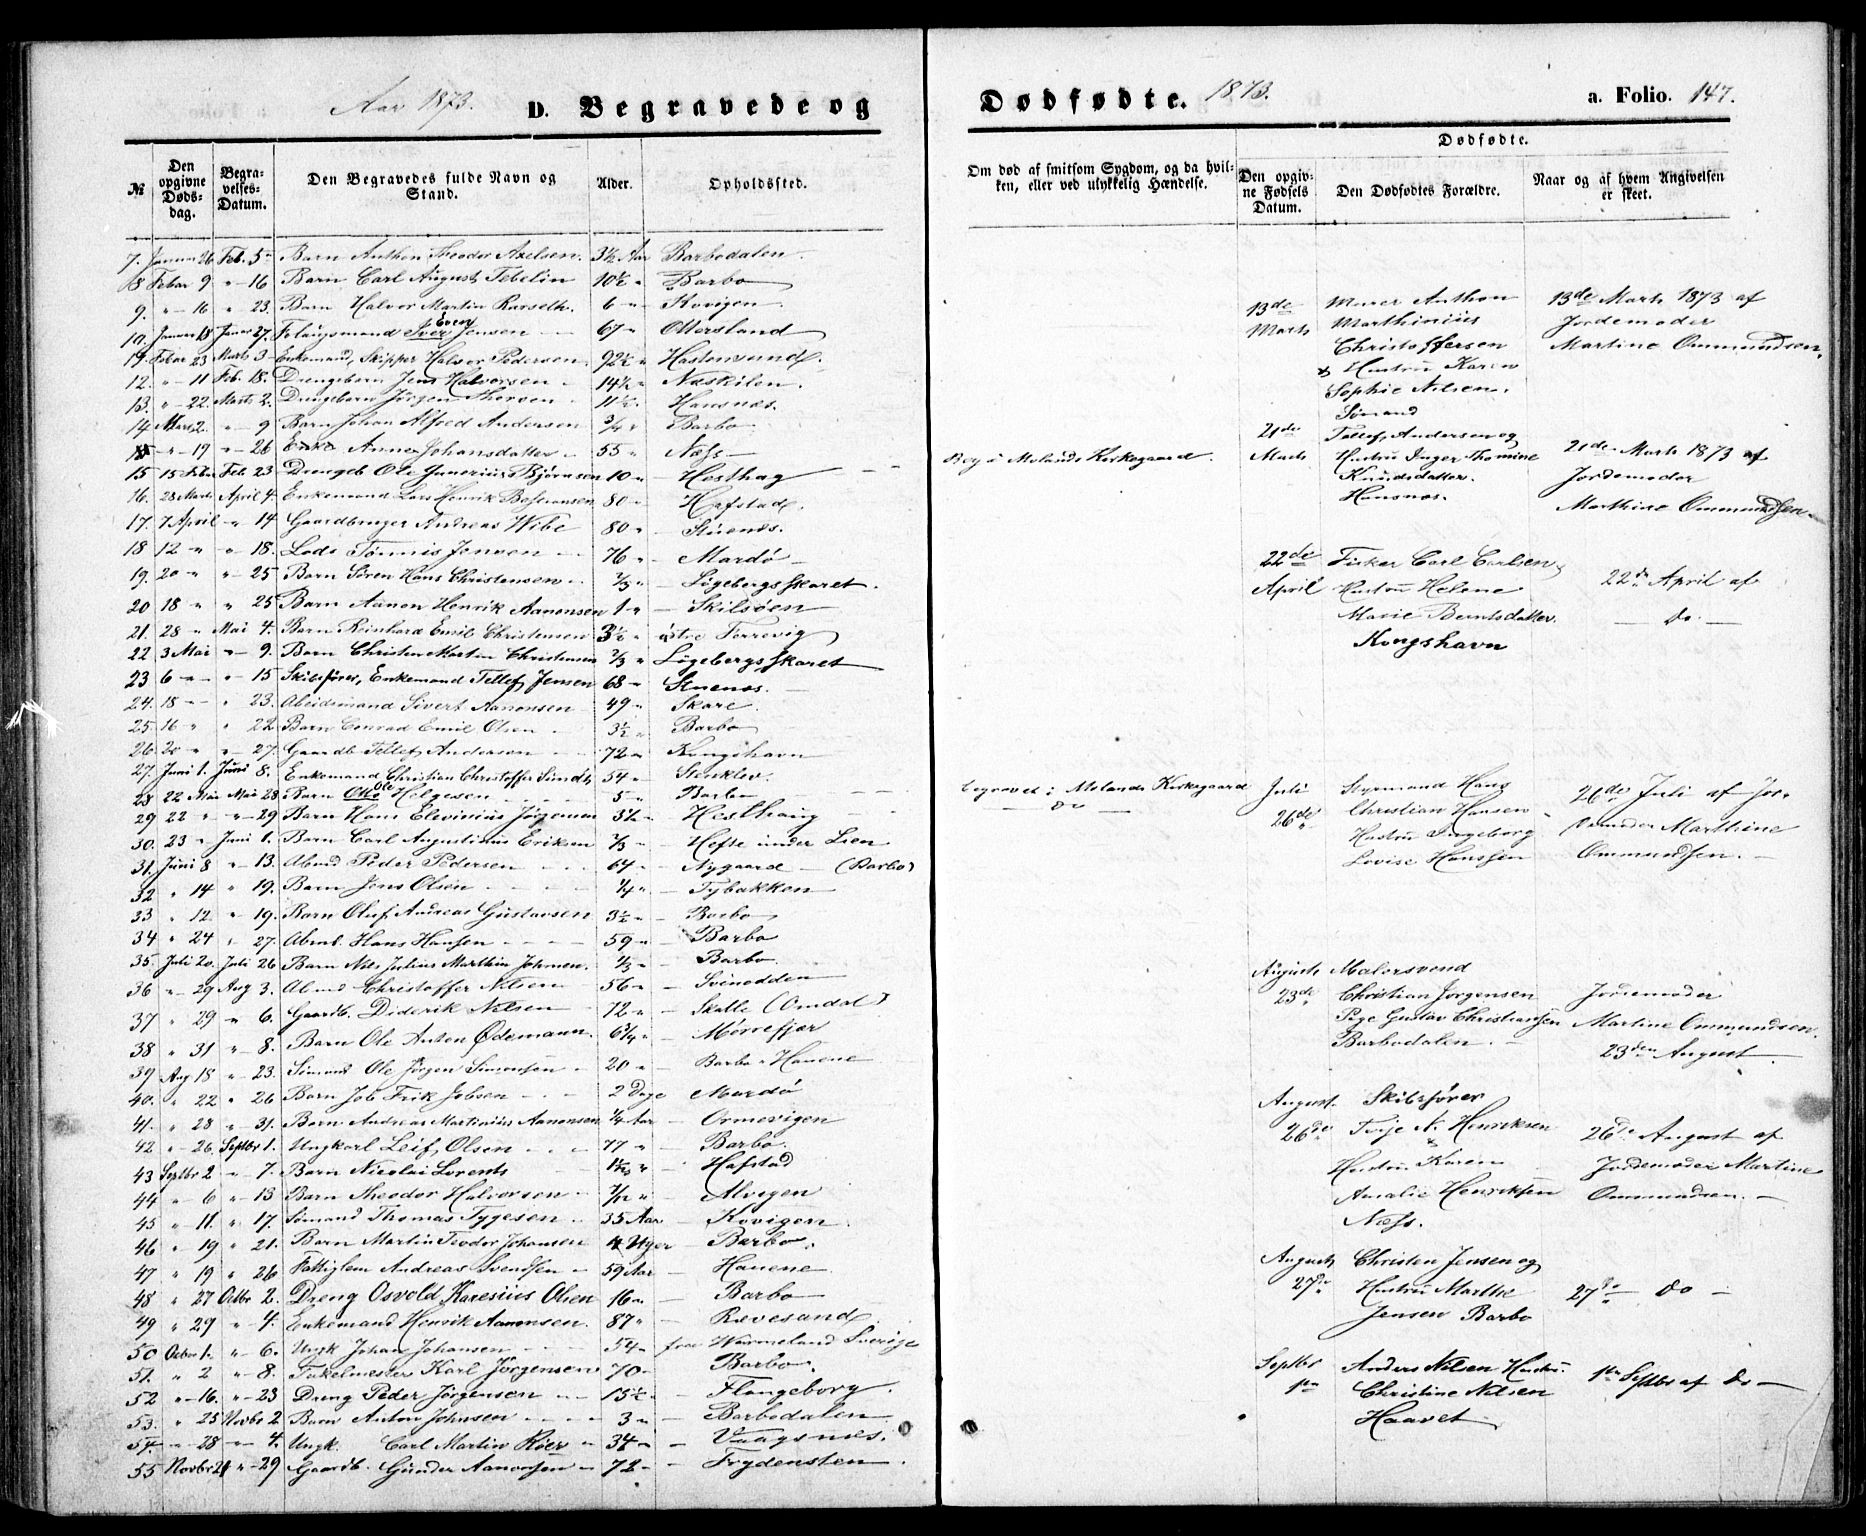 Aar 1873. D. Begravede og
Dødfødte. 1873. a. Folio. 147.
№ Den opgivne Dødsdag. Begravelses-Datum. Den Begravedes fulde Navn og Stand. Alder. Opholdssted.
Om død af smitsom Sygdom, og da hvilken, eller ved ulykkelig Hændelse.
Dødfødte.
Den opgivne Fødsels Datum. Den Dødfødtes Forældre. Naar og af hvem Angivelsen er skeet.
7. Januar 26 Feb. 5 Barn Anthon Theodor Axelsen. 3½ Aar Barbodalen.
8 Febar 9 " 16 Barn Carl August Tebelin 10½ " Barbo
9. " 16 " 23. Barn Halvor Martin 6 " Kovigen
10. Januar 18 Januar 27. Iver Even Jensen 67 " Ottersland
19. Febar 23 Marts 3 Enkemand, Skipper Halvor Pedersen 92½ " Hastensund.
12. " 11 Feb. 18. Drengebarn Jens Halvorsen 14½ " Næskilen.
13. " 22. Marts 2. Drengebarn Jörgen Thorsen 11½ Hansnæs.
14 Marts 2. " 9 Barn Johan Alfred Andersen ¾ " Barbo
" 19 " 26 Enke Anne Johansdatter 55 " Næss
15 15 Febar Feb. 23 Drengeb Ole Gunerius Björnsen 10 " Hesthag Beg i Molands Kirkegaard.
16. 28 Marts April 4. Enkemand Lars Henrik 80 " Hafstad.
17. 7 April " 14 Gaardbruger Andreas Wibe 80 " Stuenæs.
18 12 " " 18. Lods Tønnis Jensen 76 " Mardö
19. 20 " " 25 Barn Sören Hans Christensen ⅔ " Lögebergsskaret.
20 18 " " 25 Barn Aanon Henrik Aanonsen 1 " Skilsöen
21. 28 " Mai 4. Barn Reinhard Emil Christensen 3½ " östre Torrevig
22 3 Mai " 9. Barn Christen Martin Christensen ⅔ " Lögebergsskaret
23 6 " " 15 Skibsförer, Enkemand Tellef Jensen 68 " Stuenæs.
24. 18 " " 23. Abeidsmand Sivert Aanonsen 49 " Skare.
25. 16 " " 22 Barn Conrad Emil Olsen 3½ " Barbo
26. 20 " " 27. Gaardb. Tellef Andersen 72 " Kongshavn
27. Juni 1. Juni 8. Enkemand Christian Christoffer Sundt 54 " Stenklev.
28 22 Mai Mai 28 Barn Otto Ole Helgesen 5 " Barbo
29 22 " " 29 Barn Hans Elevinius Jörgensen 3½ " Hesthaug begravet i Molands Kirkegaard do
30. 23 " Juni 1. Barn Carl Augustinus Eriksen ⅔ " Hefte under Lien
31. Juni 8 " 13. Abmd Peder Pedersen 64 " Nygaard (Barbo)
32 " 14 " 19. Barn Jens Olsen ¼ " Tybakken
33 " 12 " 19. Barn Oluf Andreas Gustavsen 3½ " Barbo
34 " 24 " 27. Abmd. Hans Hansen 59 " Barbo
35. Juli 20. Juli 26 Barn Nils Julius Marthin Johnsen. ⅓ " Barbo
36 " 29 Aug 3. Abmd Christoffer Nilsen 56 " Svinodden
37 " 29 " 6. Gaardb. Diderik Nilsen 72 " Skalle (Omdal)
38 " 31 " 8. Barn Ole Anton Ödemann. 6¾ " Mörrefjær
39 Aug 18 " 23. Sömand Ole Jörgen Simonsen 20 " Barbo Havene
40. " 22 " 26 Barn Job Frik Jobsen 2 Dage Mardö
41. " 28 " 31. Barn Andreas Martinius Aanonsen ¼ Aar Ormevigen
42 " 26. Septbr 1. Ungkarl Leif Olsen 77 " Barbo.
43 Septbr 2 " 7. Barn Nicolai Lorents Hafstad
44 " 6 " 13 Barn Theodor Halvorsen 7/12 " Alvigen
45 " 11. " 17. Sömand Thomas Tygesen 35 Aar Kovigen.
46 " 19 " 21. Barn Martin Teodor Johansen 4 Uger Barbo.
47 " 19 " 26 Fattiglem Andreas Svendsen 59 Aar Havene
48 " 27 Octbr 2. Dreng Osvold Karesius Olsen 16 " Barbo
49 " 29 " 4. Enkemand Henrik Aanonsen. 87 " Rævesand
50 Octbr 1. " 6. Ungk Johan Johansen 54 " fra Wærmeland Sverige
51. " 2 " 8. Takelmester Karl Jörgensen 70 Barbo.
52 " 16. " 23 Dreng Peder Jörgensen 15½ Flangeborg.
53. " 25 Novbr 2 Barn Anton Johnsen 3 " Barbodalen
54. " 28 " 4. Ungk. Carl Martin Röer 34 " Vaagsnæs.
55 Novbr 21 " 29 Gaardb. Gunder Aanonsen 72 Frydensten.
13de Marts Murer Anthon Marthinius Christoffersen & Hustru Karen Sophie Nilsen. Sömand
13de Marts 1873 af Jordemoder Martine Ommundsen.
21de Marts Tellef Andersen og Hustru Inger Thomine Knudsdatter. Hansnæs.
21de Marts 1873 af Jordemoder Marthine Ommundsen.
22de April Fisker Carl Carlsen Hustru Helene Marie Berntsdatter Kongshavn
22de April af do
Juli 26de Styrmand Hans Christian Hansen Hustru Ingeborg Lovise Hanssen
26de Juli af Jordemoder Marthine Ommundsen.
August 23de Malersvend Christian Jorgensen Pige Gustav Christiansen Barbodalen.
Jordemoder Martine Ommundsen. 23den August
August. 26de Skibsförer Terje N. Henriksen & Hustru Karen Amalie Henriksen Næss.
26de August af Jordemoder Martine Ommundsen.
August 27de Christen Jensen og Hustru Marthe Jensen Barbo
27de do
Septbr 1ste Anders Nilsen Hustru Christine Nilsen Haavet
1ste Septbr af do